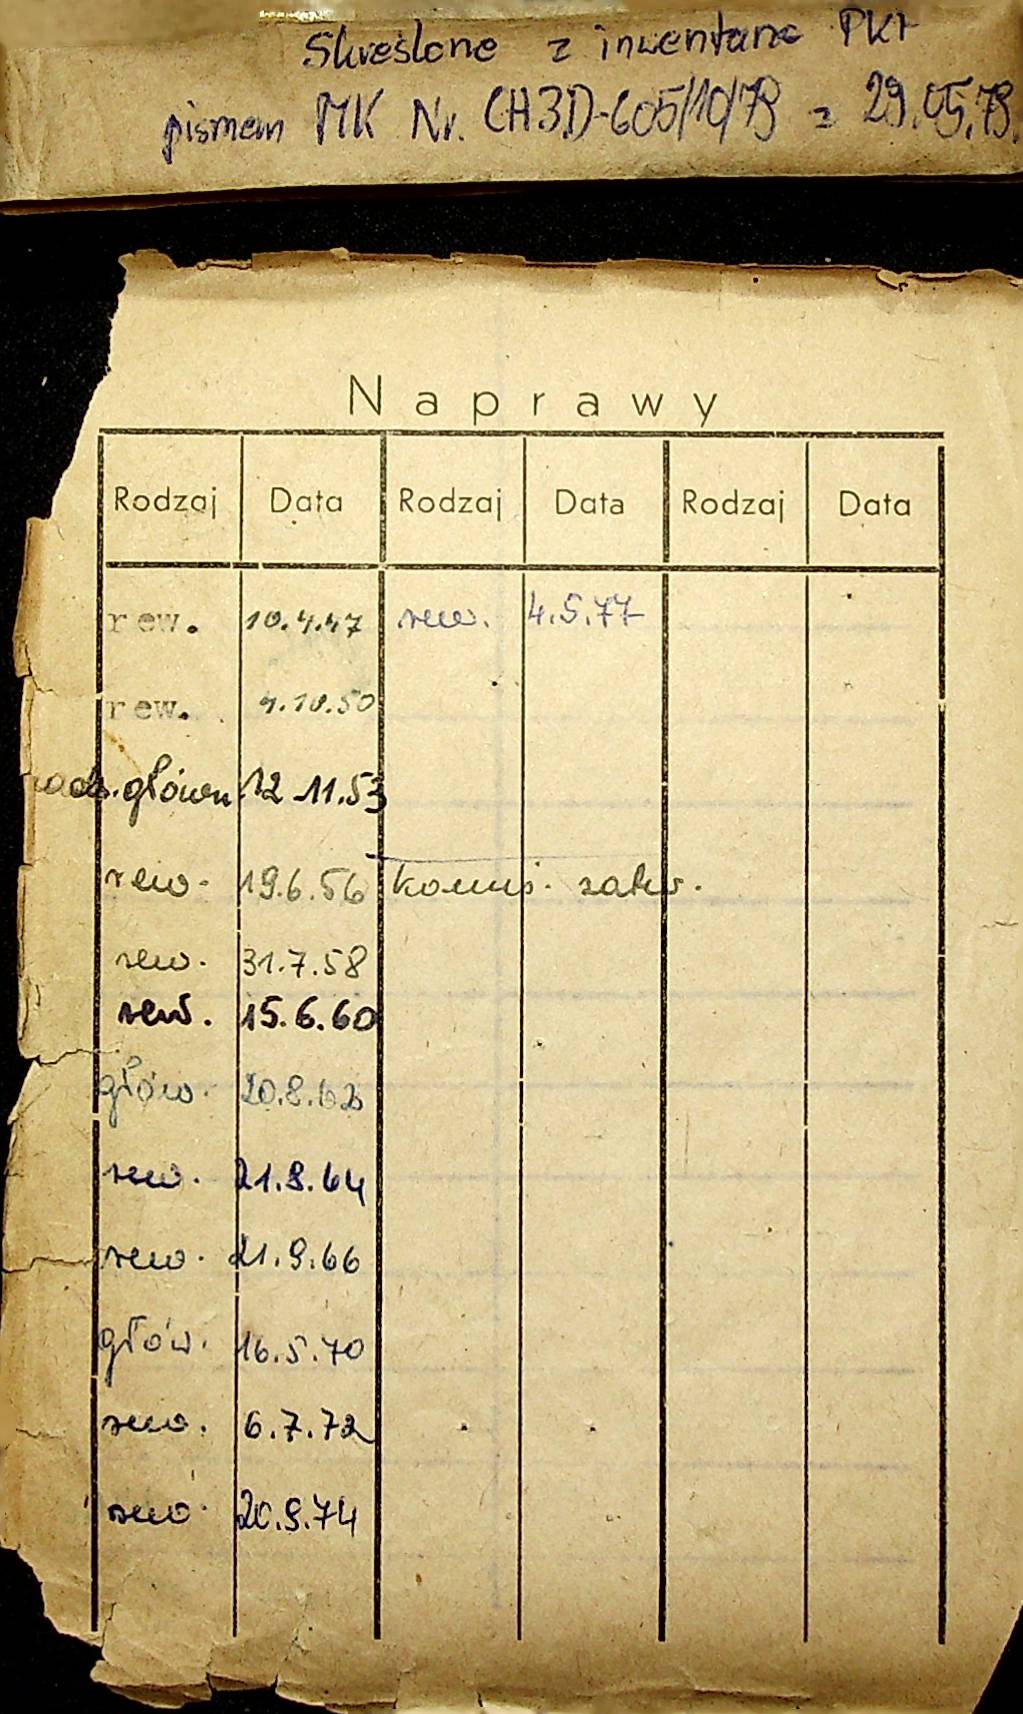 Skreślone z inwentarza PKP
pismem MK Nr. CH3D-605/10/79 z 29.05.79.
Naprawy
Rodzaj Data Rodzaj Data Rodzaj Data
rew. 10.4.47 rew. 4.5.77
rew. 4.10.50
główn 12 11.53
rew. 19.6.56 komis.
rew. 31.7.58
rew. 15.6.60
głów. 20.8.62
rew. 21.8.64
rew. 21.9.66
głów. 16.5.70
rew. 6.7.72
rew. 20.9.74